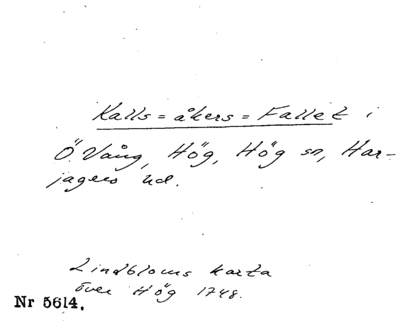 Kalls=åkers=Fallet i
Ö. Vång, Hög, Hög sn, Har-
jagers hd.
Lindbloms karta
över Hög 1748.
Nr 5614.